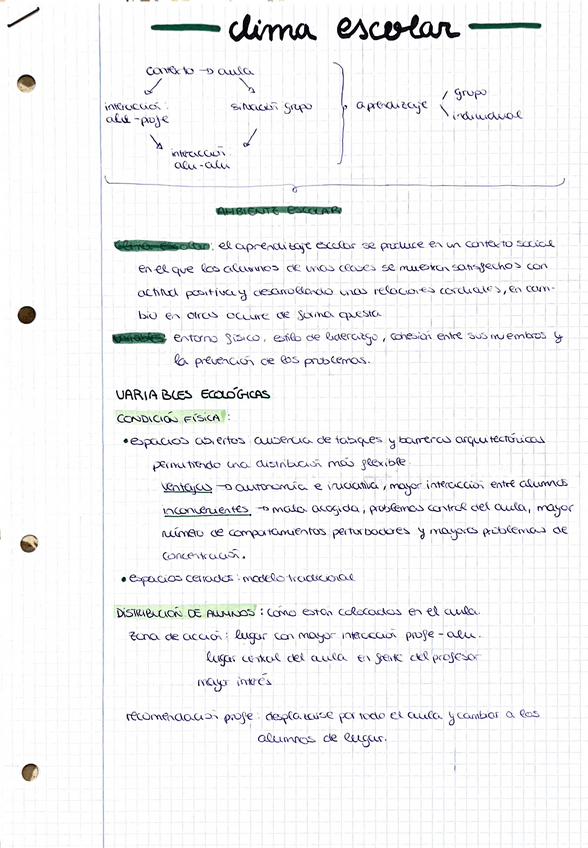 clima escolar
contexto → aula
interacción: alu-profe
situación grupo
interacción alu-alu
aprendizaje
grupo
individual
AMBIENTE ESCOLAR
clima escolar: el aprendizaje escolar se produce en un contexto social
en el que los alumnos de unas clases se muestran satisfechos con
actitud positiva y desarrollando unas relaciones cordiales, en cam-
bio en otras ocurre de forma opuesta
variables: entorno físico, estilo de liderazgo, cohesión entre sus miembros y
la prevención de los problemas.
VARIABLES ECOLÓGICAS
CONDICIÓN FÍSICA:
• espacios abiertos: ausencia de tabiques y barreras arquitectónicas
permitiendo una distribución más flexible.
ventajas → autonomía e iniciativa, mayor interacción entre alumnos
inconvenientes → mala acogida, problemas control del aula, mayor
número de comportamientos perturbadores y mayores problemas de
concentración.
• espacios cerrados: modelo tradicional
DISTRIBUCIÓN DE ALUMNOS: cómo están colocados en el aula.
Zona de acción: lugar con mayor interacción profe-alu.
lugar central del aula en frente del profesor
mayor interés
recomendación profe: desplazarse por todo el aula y cambiar a los
alumnos de lugar.